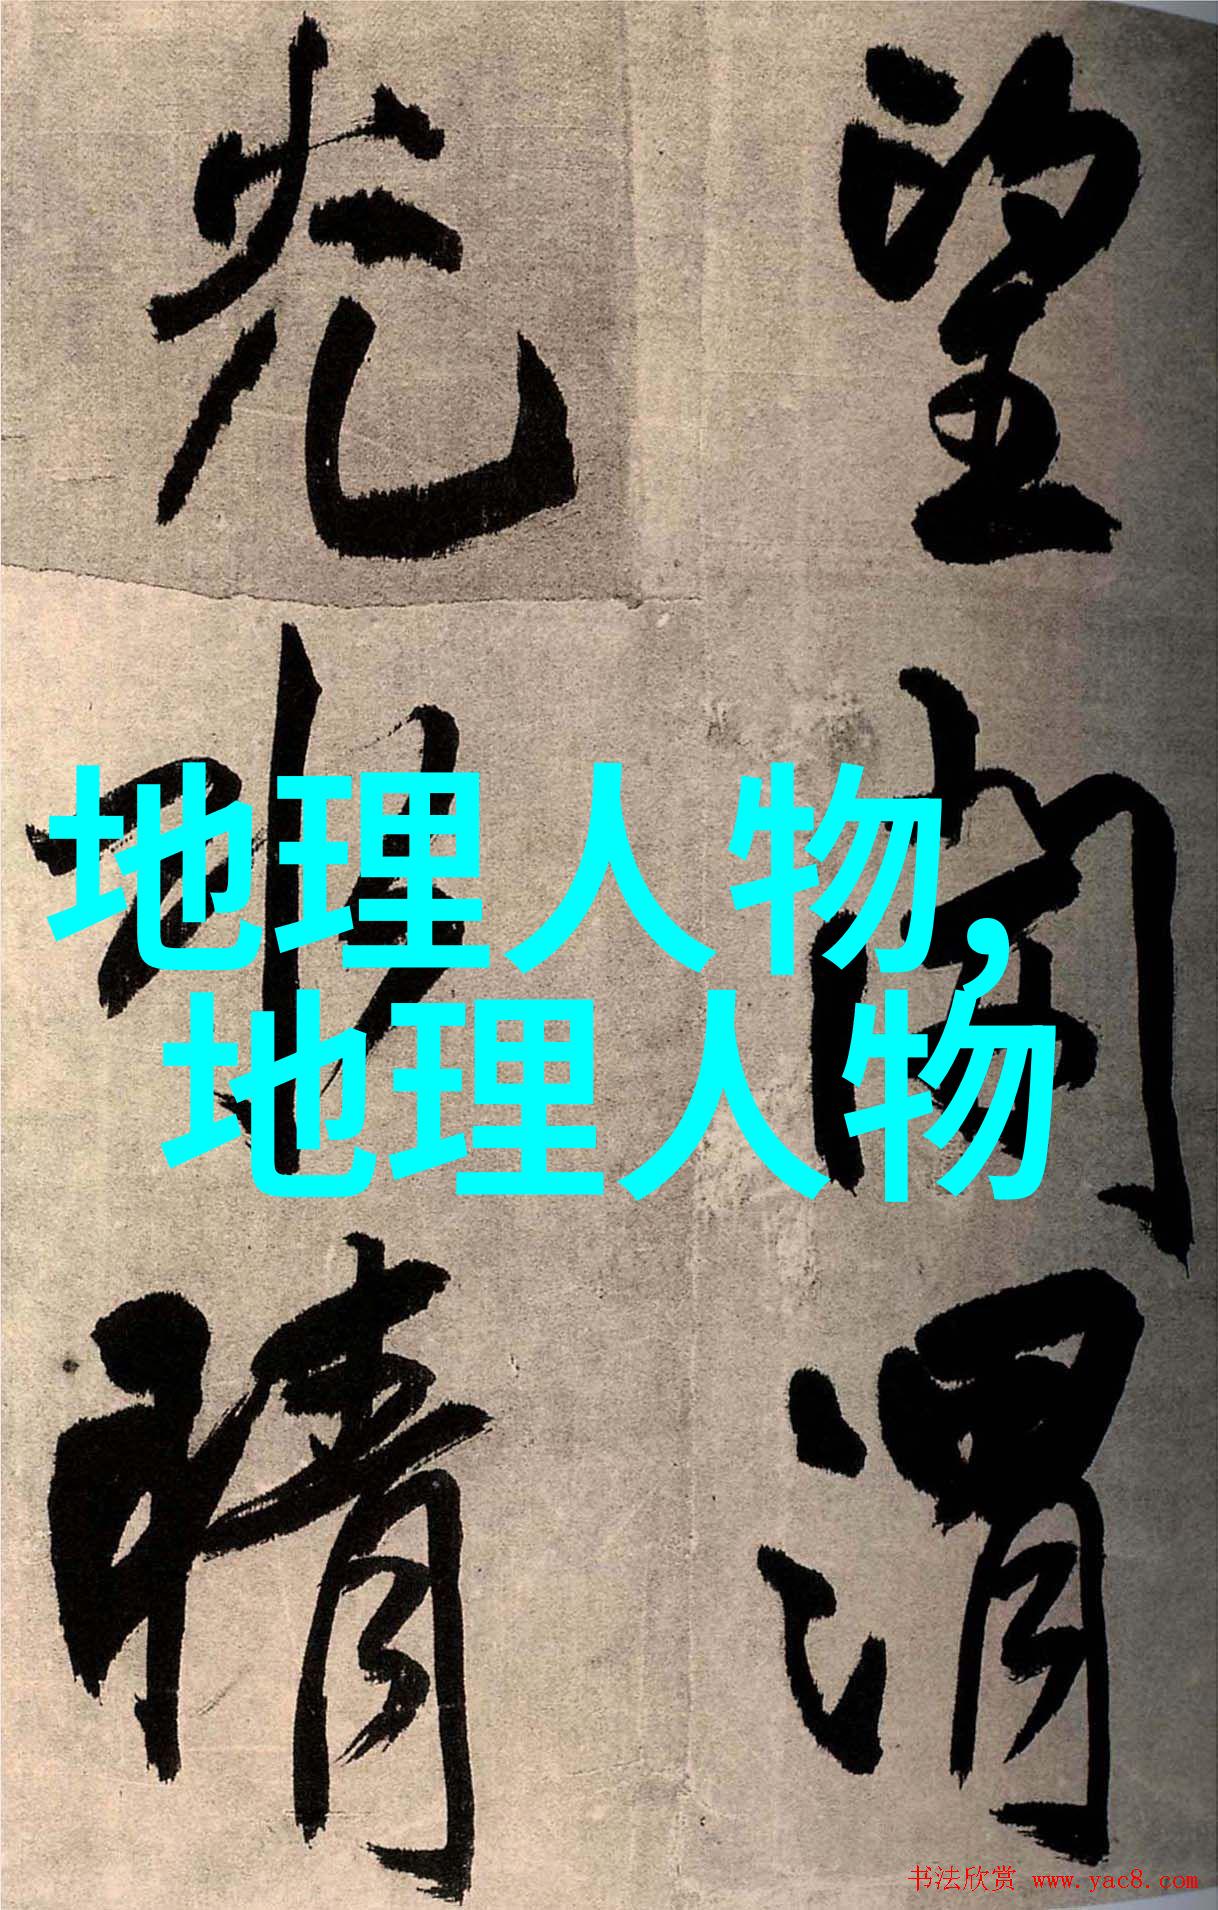 望渭
光晴
地理人物，
地理人物
书法欣赏 www.yac8.com